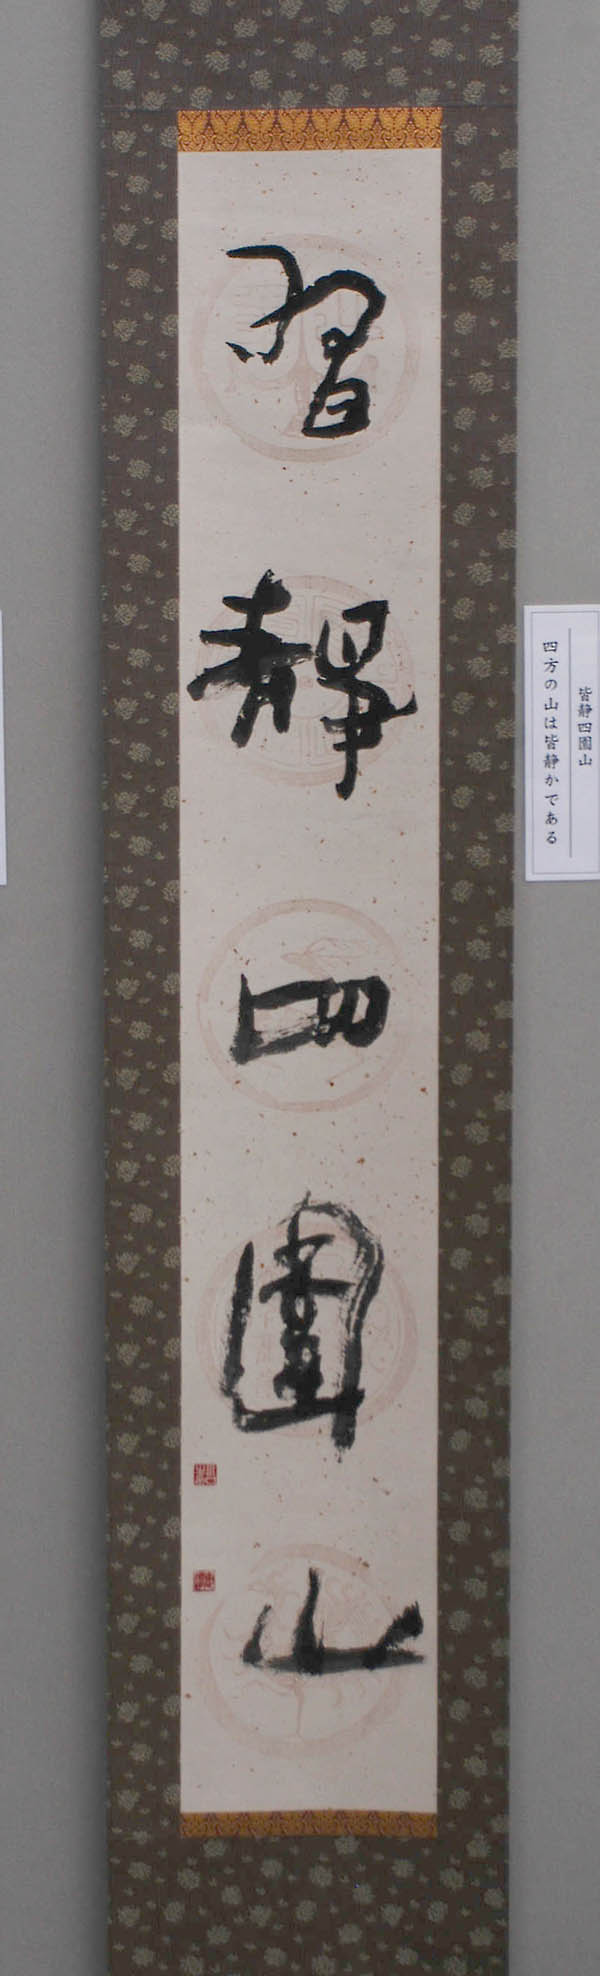 皆静四圍山
四方の山は皆静かである
習靜四圍山